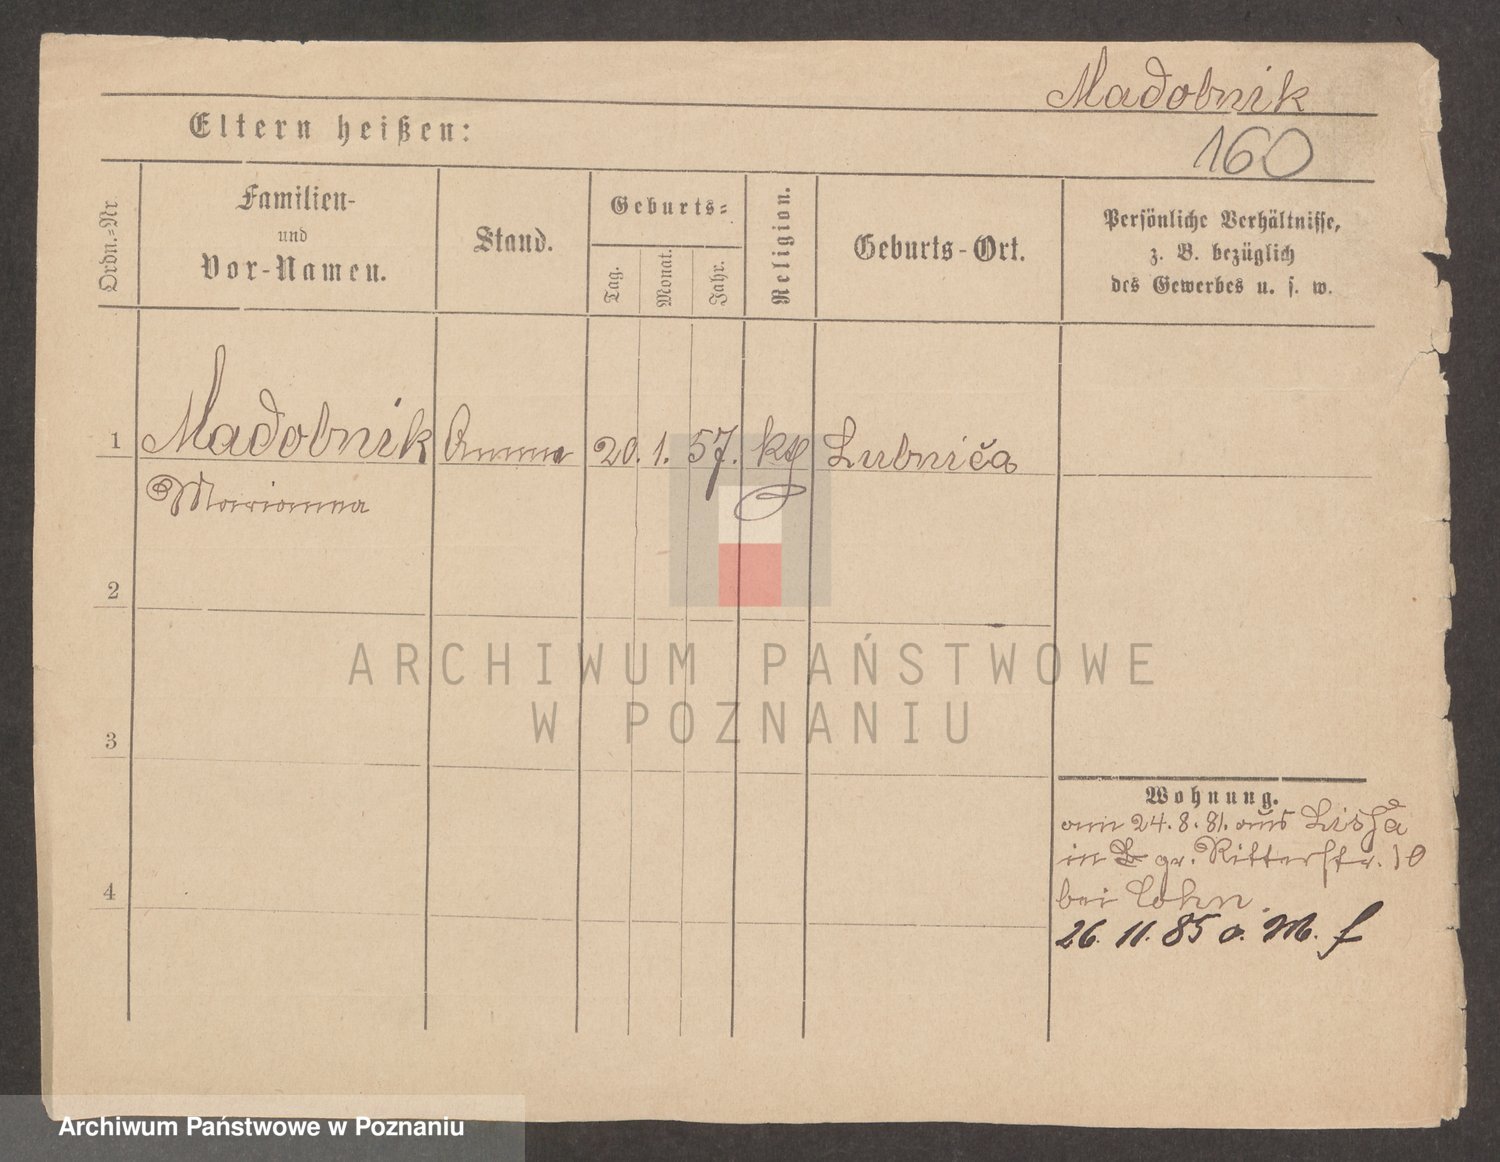 Madobnik
Eltern heißen:
160
Ordn.-Nr
Familien-
und
Vor-Namen.
Stand.
Geburts-
Tag.
Monat.
Jahr.
Religion.
Geburts-Ort.
Persönliche Verhältnisse,
z. B. bezüglich
des Gewerbes u. s. w.
1 Madobnik Amme 20. 1. 57. kth Lubnica
Marianna
2
3
4
Wohnung.
am 24.8.81. aus
in gr. Ritterstr. 10
bei Cohn.
26. 11. 85 o. M. f
ARCHIWUM PAŃSTWOWE
W POZNANIU
Archiwum Państwowe w Poznaniu